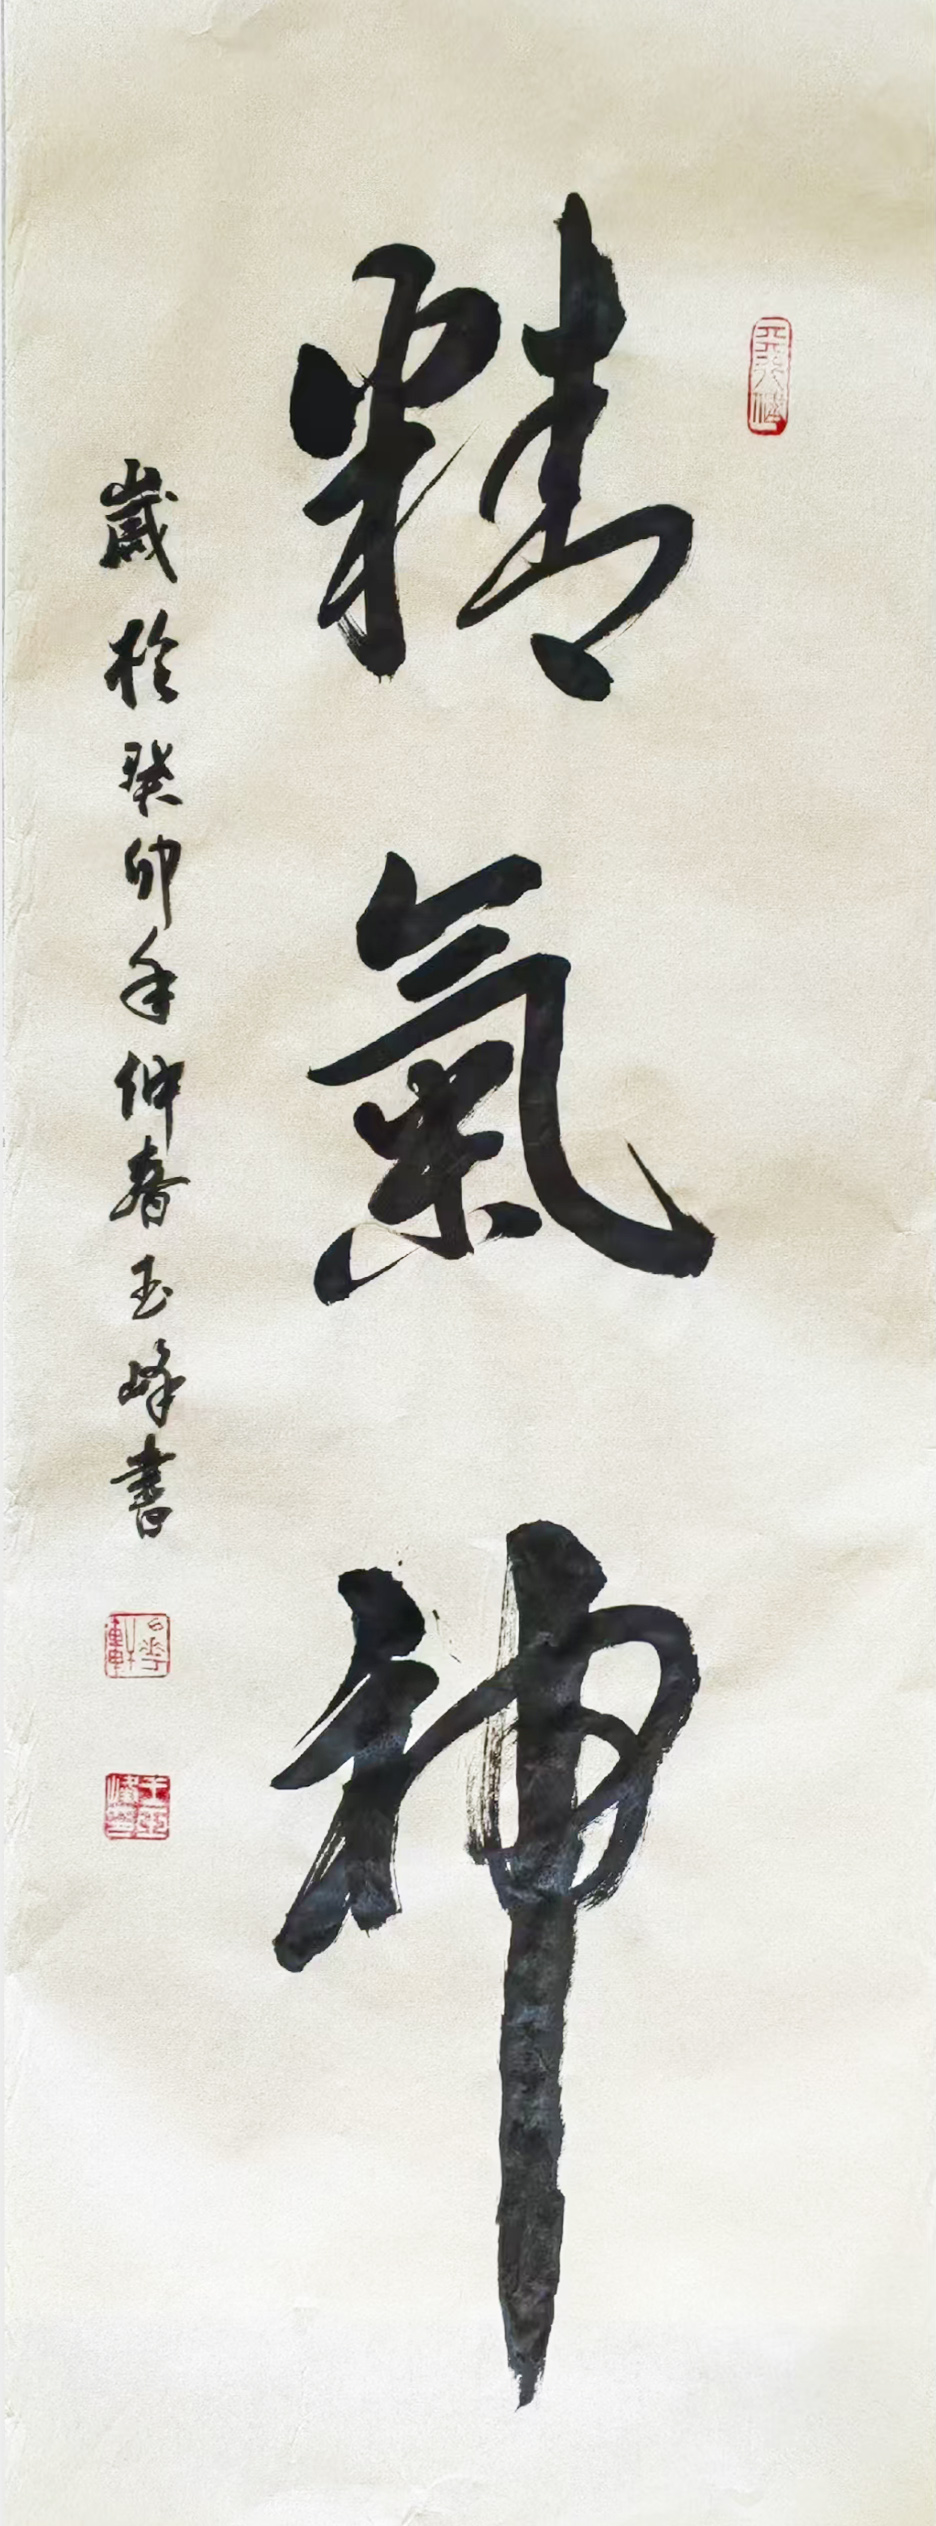 精氣神
歲於癸卯年仲春玉峰書